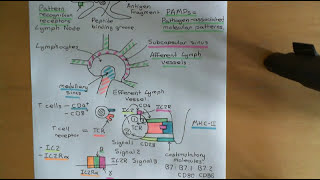 Pattern recognition receptors
Peptide binding groove
Antigen Fragment
PAMPs=
Pathogen-associated molecular patterns
Lymph Node
Subcapsular sinus
Lymphocytes
Afferent lymph vessels
Medullary sinus
Efferent Lymph Vessel
T cells - CD4+
- CD8+
T cell receptor = TCR
CD4
IL2
IL2R
MHC-II
- IL2
- IL2Rα
Signal 1
Signal 2
IL2R Signal 3
costimulatory molecules
B7 B7.1 B7.2
CD80 CD86